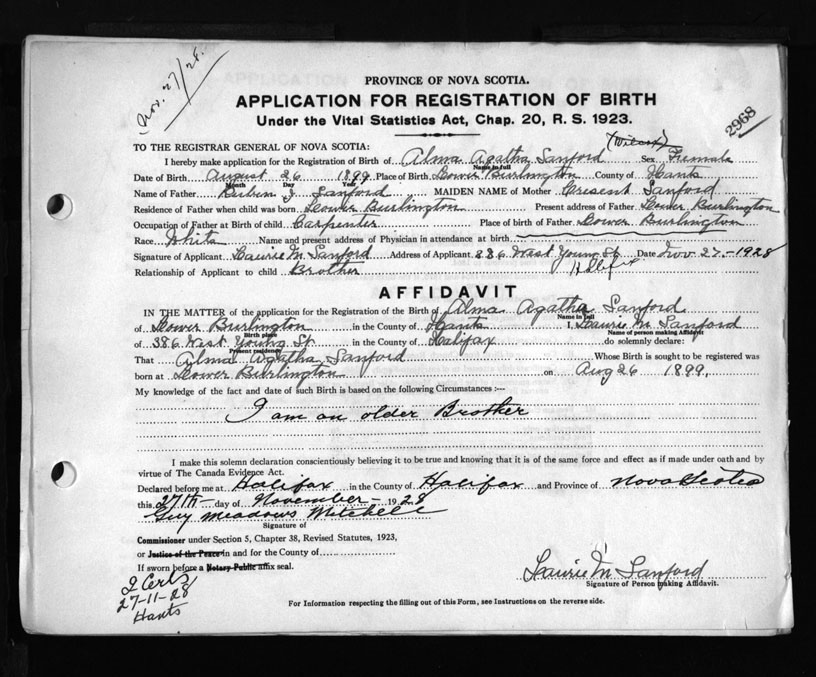 Nov. 27/28.
PROVINCE OF NOVA SCOTIA.
APPLICATION FOR REGISTRATION OF BIRTH
Under the Vital Statistics Act, Chap. 20, R. S. 1923.
2968
TO THE REGISTRAR GENERAL OF NOVA SCOTIA:
(Wilcox)
I hereby make application for the Registration of Birth of Alma Agatha Sanford Sex Female
Name in full
Date of Birth August 26 1899 Place of Birth Lower Burlington County of Hants
Month Day Year
Name of Father J. Sanford MAIDEN NAME of Mother Cresent Sanford
Residence of Father when child was born Lower Burlington Present address of Father Lower Burlington
Occupation of Father at Birth of child Carpenter Place of birth of Father Lower Burlington
Race White Name and present address of Physician in attendance at birth
Signature of Applicant Laurie M. Sanford Address of Applicant 386 West Young St. Date Nov 27-1928
Halifax
Relationship of Applicant to child Brother
AFFIDAVIT
IN THE MATTER of the application for the Registration of the Birth of Alma Agatha Sanford
Name in full
of Lower Burlington in the County of Hants I, Laurie M Sanford
Birth place Name of person making Affidavit
of 386 West Young St. in the County of Halifax do solemnly declare:
Present residence
That Alma Agatha Sanford Whose Birth is sought to be registered was
born at Lower Burlington on Aug 26 1899,
My knowledge of the fact and date of such Birth is based on the following Circumstances :—
I am an older Brother
I make this solemn declaration conscientiously believing it to be true and knowing that it is of the same force and effect as if made under oath and by
virtue of The Canada Evidence Act.
Declared before me at Halifax in the County of Halifax and Province of Nova Scotia
this 27th day of November - 1928
Guy Meadows Mitchell
Signature of
Commissioner under Section 5, Chapter 38, Revised Statutes, 1923,
or Justice of the Peace in and for the County of
If sworn before a Notary Public affix seal.
Laurie M Sanford
Signature of Person making Affidavit.
2 Certs
27-11-28
Hants
For Information respecting the filling out of this Form, see Instructions on the reverse side.